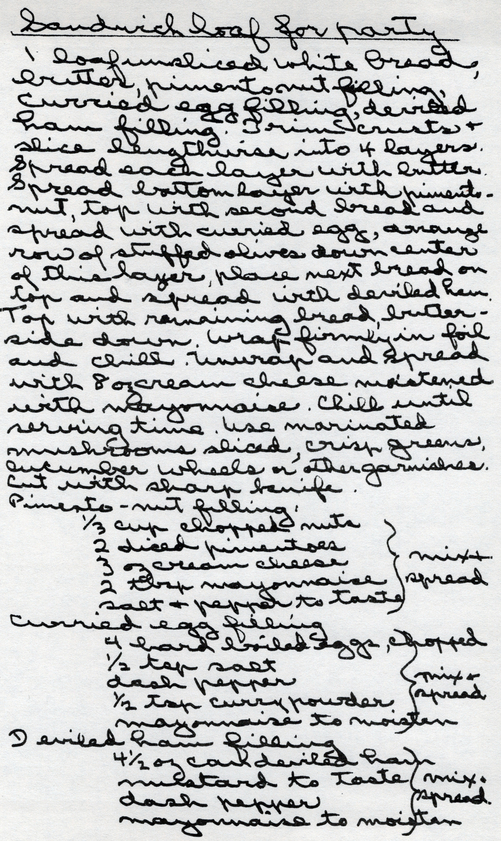 Sandwich loaf for party
1 loaf unsliced white bread,
butter, pimento nut filling,
curried egg filling, deviled
ham filling. Trim crusts +
slice lengthwise into 4 layers.
Spread each layer with butter.
Spread bottom layer with pimento-
nut, top with second bread and
spread with curried egg, arrange
row of stuffed olives down center
of this layer, place next bread on
top and spread with deviled ham.
Top with remaining bread, butter-
side down. Wrap firmly in foil
and chill. Unwrap and spread
with 8 oz cream cheese moistened
with mayonnaise. Chill until
serving time. Use marinated
mushrooms sliced, crisp greens,
cucumber wheels or other garnishes.
Cut with sharp knife.
Pimento-nut filling.
1/3 cup chopped nuts
2 diced pimentoes
3 oz cream cheese
2 tbsp mayonnaise
salt + pepper to taste
mix +
spread
Curried egg filling
4 hard boiled eggs, chopped
1/2 tsp salt
dash pepper
1/2 tsp curry powder
mayonnaise to moisten
mix +
spread
Deviled ham filling
4 1/2 oz can deviled ham
mustard to taste
dash pepper
mayonnaise to moisten
mix +
spread.